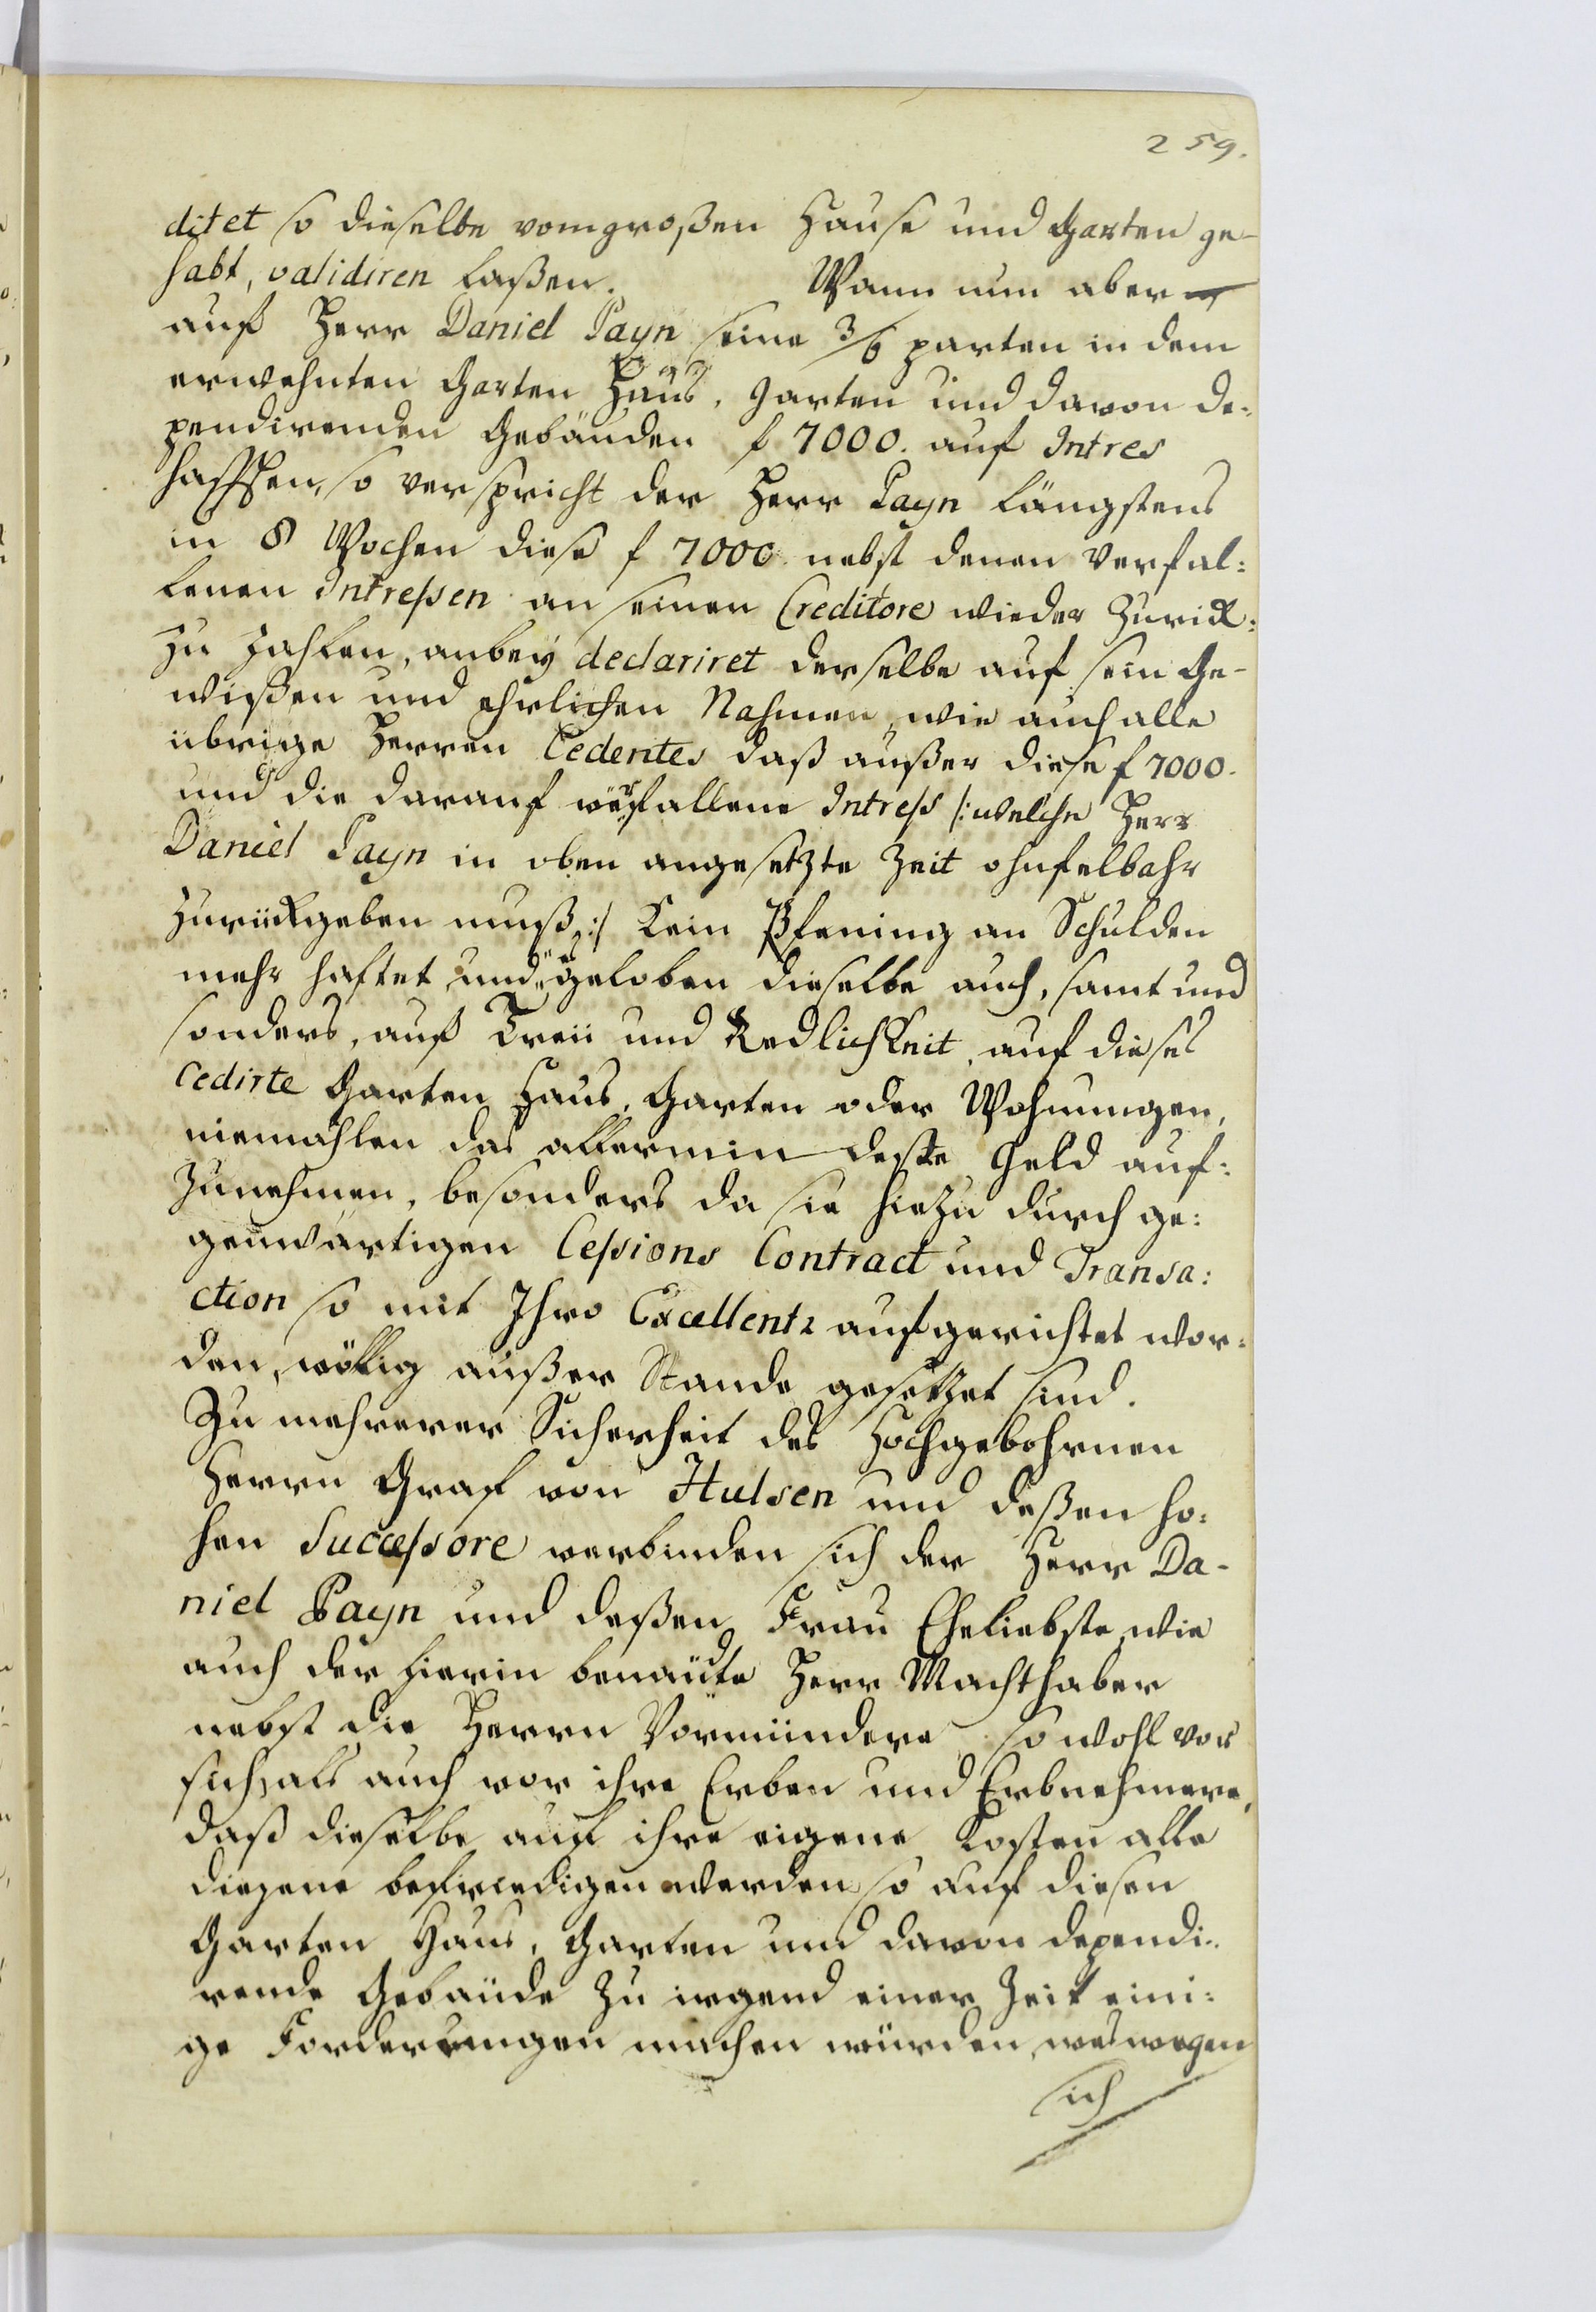 259.
ditet so dieselbe vom großen Hause und Garten ge-
habt, validiren laßen. Wann nun aber
auf Herr Daniel Payn seine 3/6 parten in dem
erwehnten Garten Haus, Garten und davon de:
pendirenden Gebäuden f 7000. auf Intres
hafften, so verspricht der Herr Payn längstens
in 8 Wochen diese f 7000. nebst denen Verfal:
lenen Intressen an seinen Creditore wieder zurük:
zu zahlen, anbey declariret derselbe auf sein Ge-
wißen und ehrlichen Nahmen, wie auch alle
übrige Herren Cedentes daß außer diese f 7000.
und die darauf verfallene Intress /: welche Herr
Daniel Payn in oben angesetzte Zeit ohnfelbahr
zurückgeben muß :/ Kein Pfening an Schulden
mehr haftet und geloben dieselbe auch, samt und
sonders, auf Treü und Redlichkeit, auf dieses
Cedirte Garten Haus, Garten oder Wohnungen,
niemahlen das allermindeste Geld auf:
zunehmen, besonders da sie hiezu durch ge:
genwärtigen Cessions Contract und Transa:
ction so mit Ihro Excellentz aufgerichtet wor:
den, völlig außer Stande gesetzet sind.
Zu mehrerer Sicherheit des Hochgebohrnen
Herrn Graf von Hulsen und deßen ho:
hen Successore verbinden sich der Herr Da-
niel Payn und deßen Frau Eheliebste, wie
auch der hierin benante Herr Machthaber
nebst die Herrn Vormündere, so wohl vor
sich, als auch vor ihre Erben und Erbnehmere,
daß dieselbe auf ihre eigene Kosten alle
diejene befriedigen werden, so auf diesen
Garten Haus, Garten und davon dependi:
rende Gebäude zu irgend einer Zeit eini:
ge Forderungen machen würden, weswegen
sich